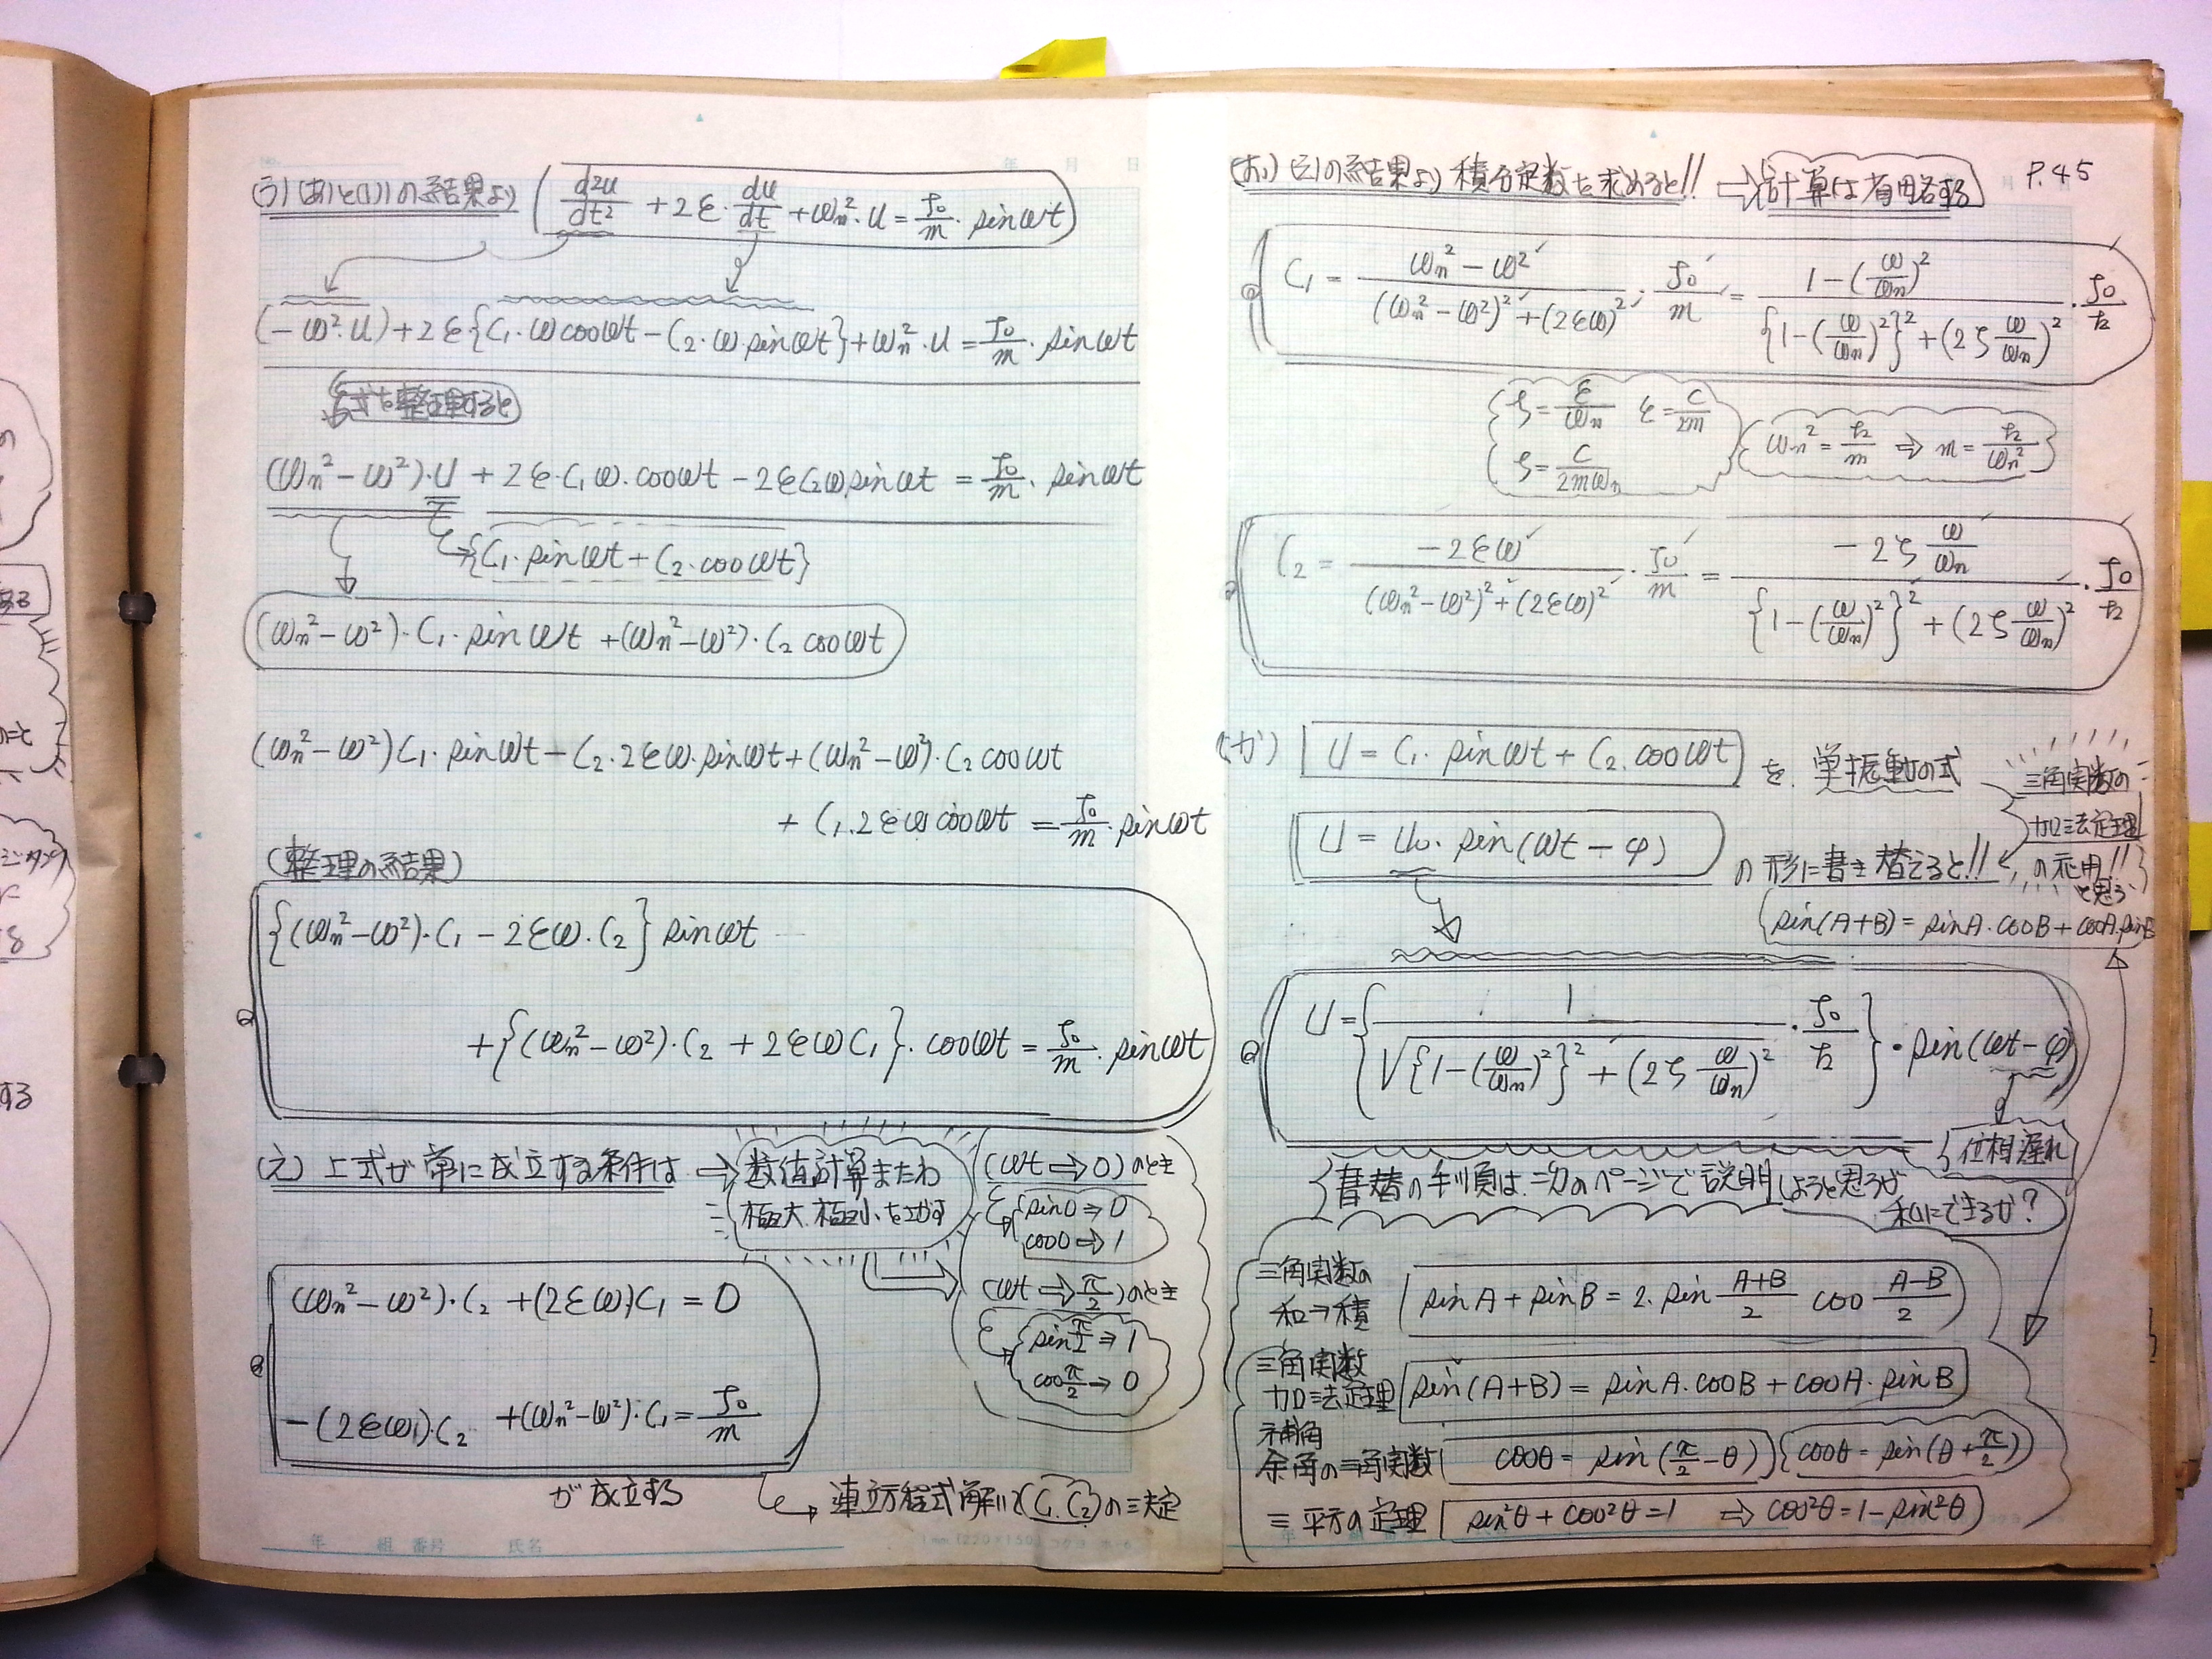 (う) (あ)と(い)の結果より d²u/dt² + 2ε・du/dt + ωn²・u = f0/m・sinωt
(-ω²・u) + 2ε{C1・ωcosωt - C2・ω sinωt} + ωn²・u = f0/m・sinωt
式を整理すると
(ωn² - ω²)・u + 2ε・C1ω・cosωt - 2εC2ωsinωt = f0/m・sinωt
{C1・sinωt + C2・cosωt}
(ωn² - ω²)・C1・sinωt + (ωn² - ω²)・C2 cosωt
(ωn² - ω²)C1・sinωt - C2・2εω・sinωt + (ωn² - ω²)・C2 cosωt
+ C1・2εω cosωt = f0/m・sinωt
(整理の結果)
{(ωn² - ω²)・C1 - 2εω・C2} sinωt
+ {(ωn² - ω²)・C2 + 2εωC1}・cosωt = f0/m・sinωt
(え) 上式が常に成立する条件は ⇒ 数値計算またわ
極大、極小を
(ωt ⇒ 0)のとき
sin0 ⇒ 0
cos0 ⇒ 1
(ωt ⇒ π/2)のとき
sin π/2 ⇒ 1
cos π/2 ⇒ 0
(ωn² - ω²)・C2 + (2εω)C1 = 0
-(2εω)・C2 + (ωn² - ω²)・C1 = f0/m
が成立する
連立方程式解いて(C1, C2)の決定
年 組 番号 氏名
P.45
(お) (え)の結果より積分定数を求めると!! ⇒ 計算は省略する
C1 = ωn² - ω² / (ωn² - ω²)² + (2εω)² ・ f0/m = 1 - (ω/ωn)² / {1 - (ω/ωn)²}² + (2ζ ω/ωn)² ・ f0/k
ζ = ε/ωn ε = C/2m
ζ = C/2mωn
ωn² = k/m ⇒ m = k/ωn²
C2 = -2εω / (ωn² - ω²)² + (2εω)² ・ f0/m = -2ζ ω/ωn / {1 - (ω/ωn)²}² + (2ζ ω/ωn)² ・ f0/k
(か) u = C1・sinωt + C2・cosωt を 単振動の式
u = u0・sin(ωt - φ) の形に書き替えると!!
三角関数の
加法定理
の応用!!
と思う
sin(A+B) = sinA・cosB + cosA・sinB
u = { 1 / √{1 - (ω/ωn)²}² + (2ζ ω/ωn)² ・ f0/k }・sin(ωt - φ)
位相遅れ
書替の手順は次のページで説明しようと思うが
私にできるか?
三角関数の
和→積 sinA + sinB = 2・sin A+B/2 cos A-B/2
三角関数
加法定理 sin(A+B) = sinA・cosB + cosA・sinB
補角
余角の三角関数 cosθ = sin(π/2 - θ) cosθ = sin(θ + π/2)
三平方の定理 sin²θ + cos²θ = 1 ⇒ cos²θ = 1 - sin²θ